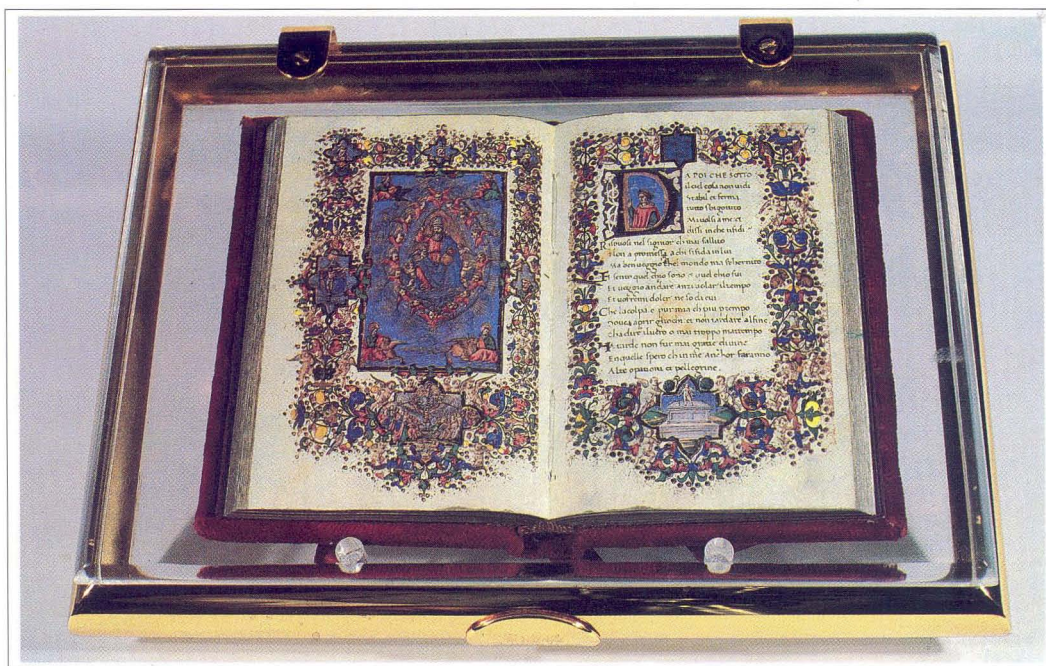 DA POI CHE SOTTO
il ciel cosa non vidi
Stabil et ferma
tutto sbigotito
Mi volsi a me et
dissi in che tifidi
Rispuose nel signor ch mai fallito
Non a promessa a chi sifida in lui
Ma ben veggio chel mondo ma schernito
Et sento quel chio sono et quel chio fui
Et veggio andare anzi volar il tempo
Et vorremi doler ne so di cui
Che la colpa e pur mia ch piu p tempo
aprir et non tardare al fine
cha dire iluero o mai troppo mattempo
Ma tarde non fur mai gratie divine
En quelle spero ch in me anchor faranno
Alte opationi et pellegrine.